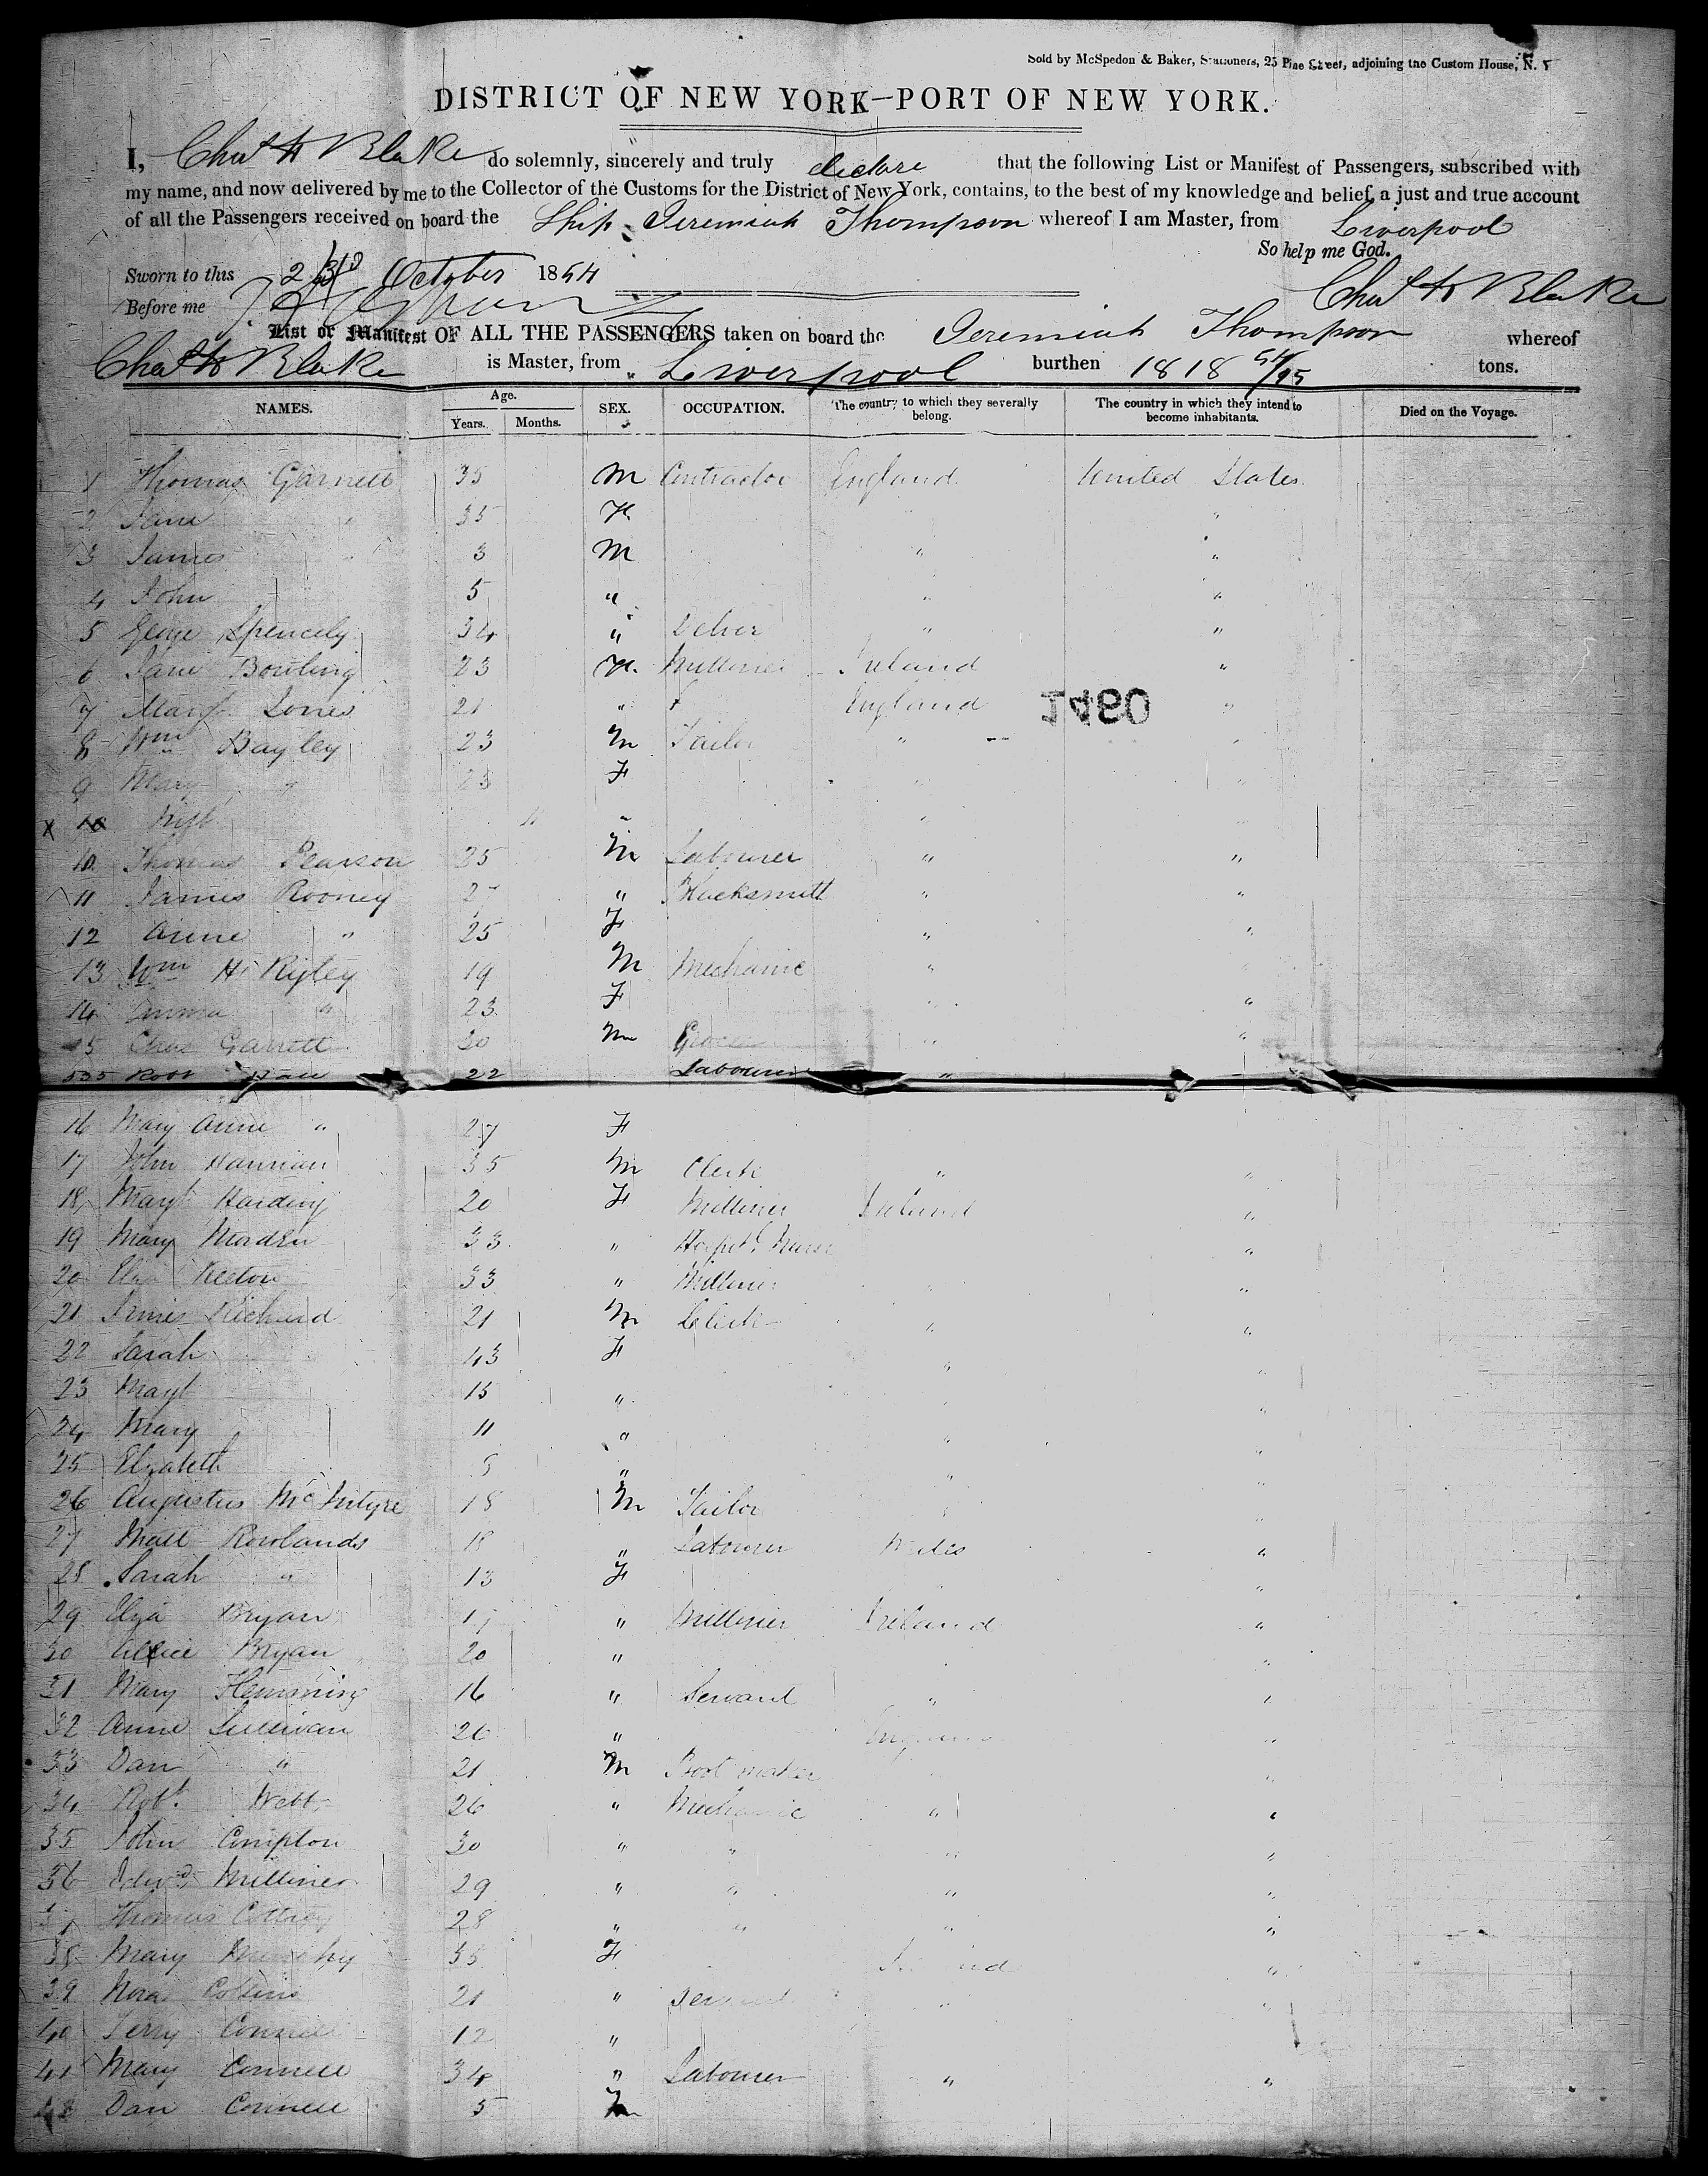 Sold by McSpedon & Baker, Stationers, 25 Pine Street, adjoining the Custom House, N. Y
DISTRICT OF NEW YORK—PORT OF NEW YORK.
I, Chas H Blake do solemnly, sincerely and truly declare that the following List or Manifest of Passengers, subscribed with
my name, and now delivered by me to the Collector of the Customs for the District of New York, contains, to the best of my knowledge and belief, a just and true account
of all the Passengers received on board the Ship Jeremiah Thompson whereof I am Master, from Liverpool
So help me God.
Sworn to this October 1854
Chas H Blake
Before me
List or Manifest OF ALL THE PASSENGERS taken on board the Jeremiah Thompson whereof
Chas H Blake is Master, from Liverpool burthen 1818 54/95 tons.
NAMES. Age. Years. Months. SEX. OCCUPATION. The country to which they severally belong. The country in which they intend to become inhabitants. Died on the Voyage.
1 Thomas Garnett 35 M Contractor England United States
2 Jane " 35 F " "
3 James " 3 M " "
4 John 5 " " "
5 George Spencely 34 " " "
6 Jane Bowling 23 F. Milliner Ireland "
7 Margt Jones 21 " England "
1480
8 Wm Bayley 23 M Tailor " "
9 Mary " 23 F " "
X Inft 11 " " "
10 Thomas Pearson 25 M Labourer " "
11 James Rooney 27 " Blacksmith " "
12 Anne " 25 F " "
13 Wm H. Rigley 19 M Mechanic " "
14 Emma " 23 F " "
15 Chas Garrett 20 M Grocer " "
535 Robt 22 Labourer "
16 Mary Anne " 27 F
17 John Hannan 35 M Clerk " "
18 Margt Harding 20 F Milliner Ireland "
19 Mary 33 " Hospitl Nurse "
20 Eliza Keeton 33 " Milliner " "
21 James Richard 21 M Clerk " "
22 Sarah 43 F " "
23 Margt 15 " " "
24 Mary 11 " " "
25 Elizabeth 9 " " "
26 Augustus McIntyre 18 M Tailor " "
27 Matt Rowlands 18 " Labourer Wales "
28 Sarah " 13 F " "
29 Eliza Bryan " Milliner Ireland "
30 Allice Bryan 20 " "
31 Mary Flemming 16 " Servant " "
32 Anne Sullivan 26 " England "
33 Dan " 21 M Boot maker "
34 Robt. Webb 26 " Mechanic " "
35 John Compton 30 " " " "
36 Edwd Milliner 29 " " " "
37 Thomas 28 " " " "
38 Mary Murphy 35 F Ireland "
39 Nora Collins 21 " Servant " "
40 Jerry Connell 12 "
41 Mary Connell 34 " Labourer " "
42 Dan Connell 5 M